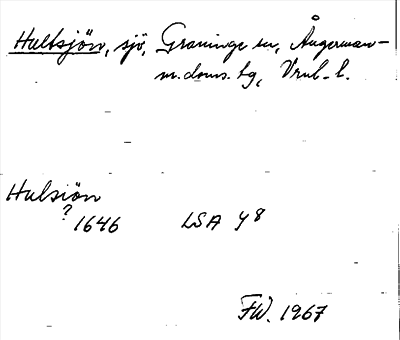 Hultsjön, sjö, Graninge sn, Ångerman-
m.doms. tg, Vrnl. l.
Hulsiön
? 1646 LSA Y 8
FW. 1967